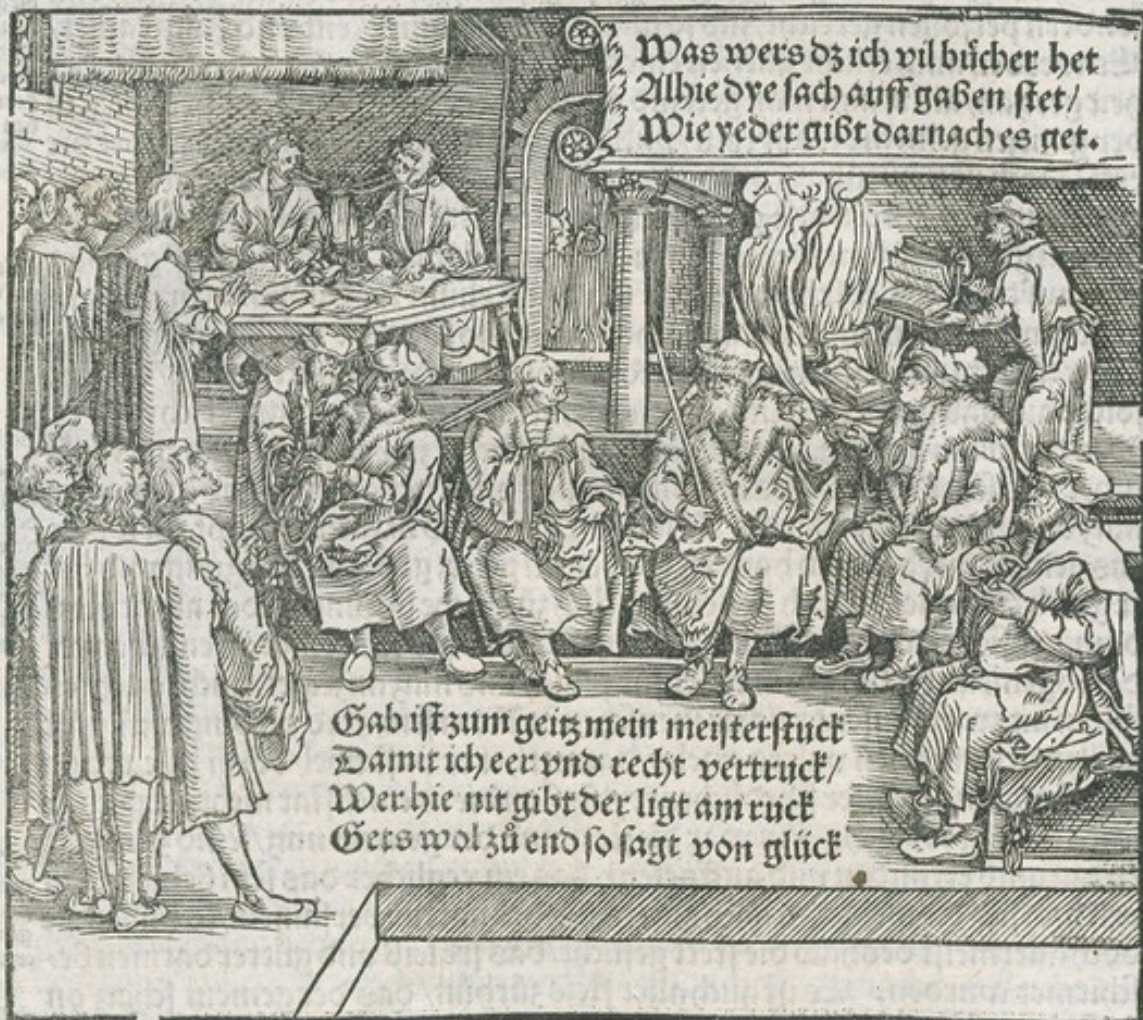 Was wers dz ich vil bücher het
Alhie dye sach auff gaben stet/
Wie yeder gibt darnach es get.
Gab ist zum geitz mein meisterstuck
Damit ich eer vnd recht vertruck/
Wer hie nit gibt der ligt am ruck
Gets wol zů end so sagt von glück